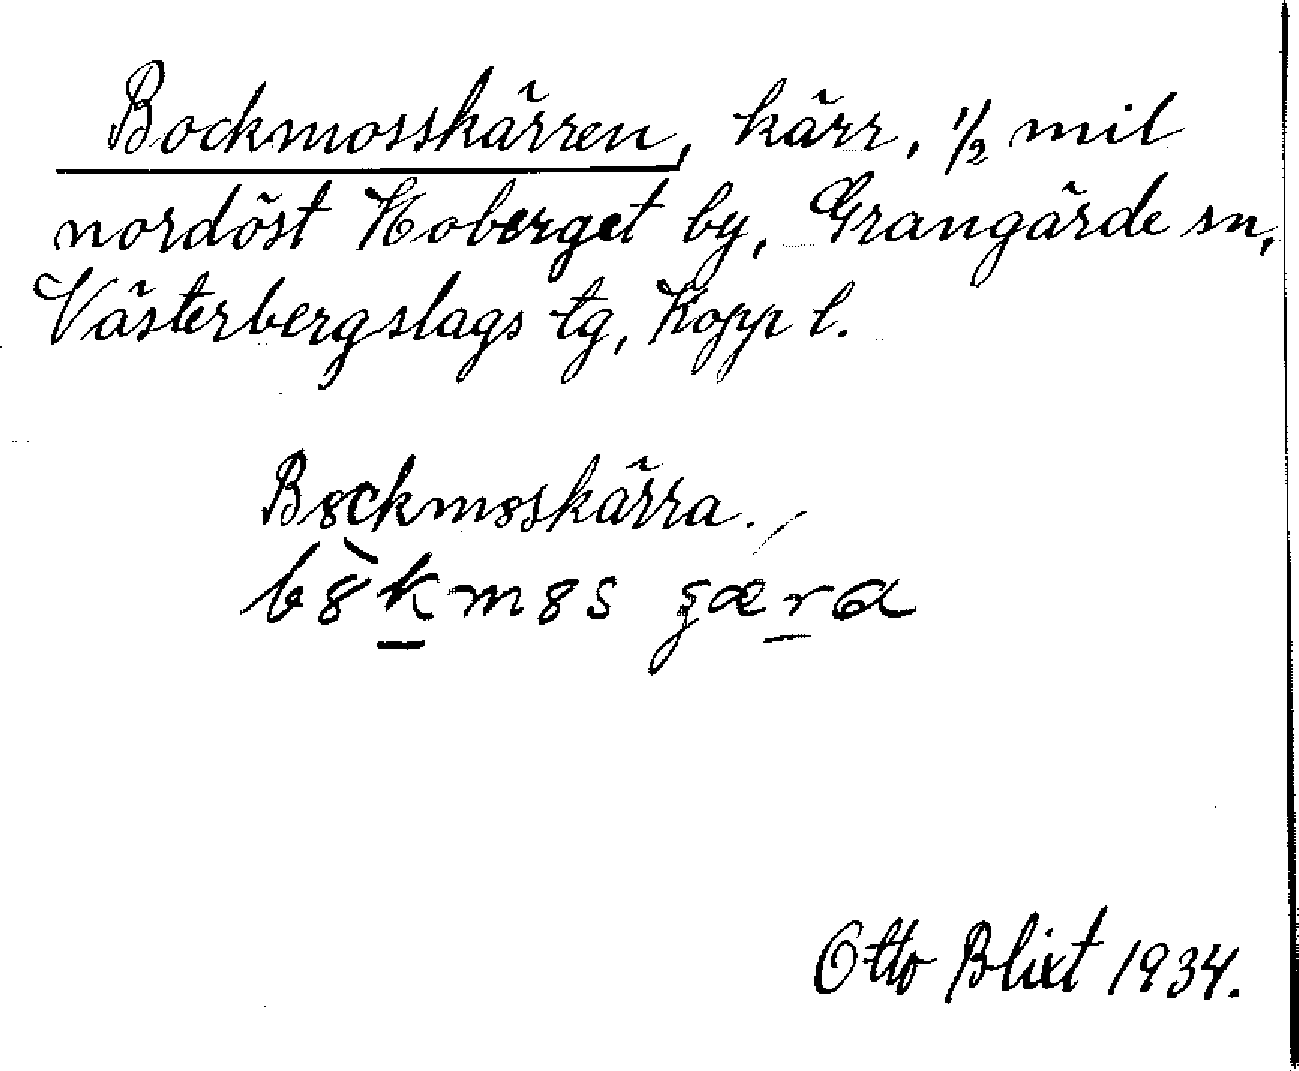 Bockmosskärren, kärr, 1/2 mil
nordöst Hoberget by, Grangärde sn,
Västerbergslags tg, Kopp l.
B8ckm8skärra.
b8̀k̲m8s ʂær̲a
Otto Blixt 1934.